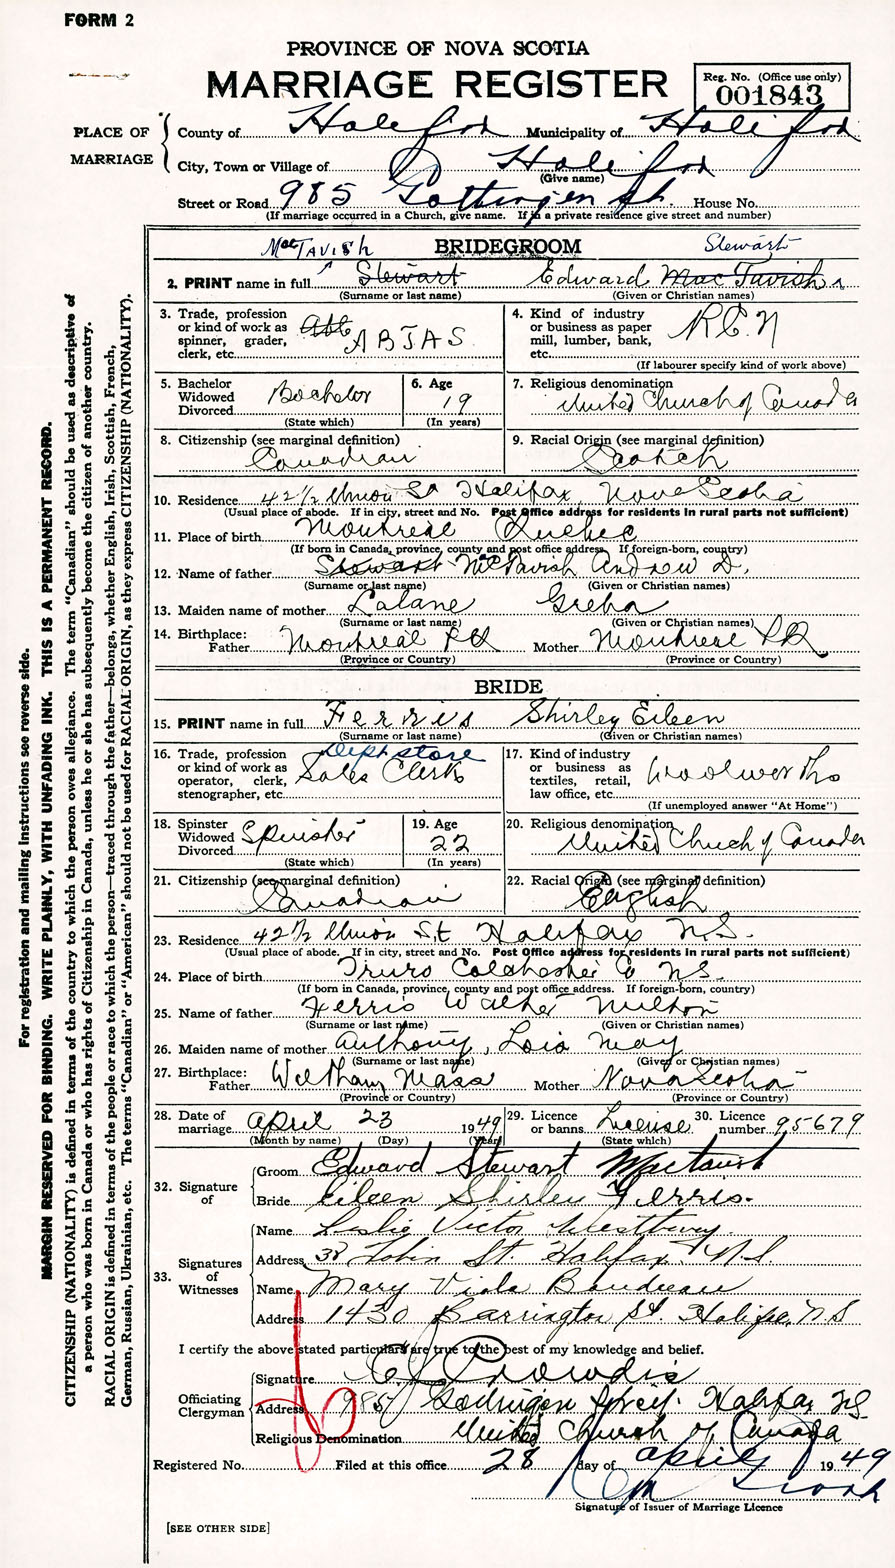 FORM 2
PROVINCE OF NOVA SCOTIA
MARRIAGE REGISTER
Reg. No. (Office use only)
001843
PLACE OF MARRIAGE
County of Halifax Municipality of Halifax
City, Town or Village of Halifax
(Give name)
Street or Road 985 Gottingen St. House No.
(If marriage occurred in a Church, give name. If in a private residence give street and number)
MacTavish BRIDEGROOM Stewart
2. PRINT name in full Stewart Edward MacTavish
(Surname or last name) (Given or Christian names)
3. Trade, profession or kind of work as spinner, grader, clerk, etc. ABTAS
4. Kind of industry or business as paper mill, lumber, bank, etc. RCN
(If labourer specify kind of work above)
5. Bachelor Widowed Divorced Bachelor
(State which)
6. Age 19
(In years)
7. Religious denomination United Church of Canada
8. Citizenship (see marginal definition) Canadian
9. Racial Origin (see marginal definition) Scotch
10. Residence 42½ Union St Halifax, Nova Scotia
(Usual place of abode. If in city, street and No. Post Office address for residents in rural parts not sufficient)
11. Place of birth Montreal Quebec
(If born in Canada, province, county and post office address. If foreign-born, country)
12. Name of father Stewart McTavish Andrew D.
(Surname or last name) (Given or Christian names)
13. Maiden name of mother Lalane Greba
(Surname or last name) (Given or Christian names)
14. Birthplace: Father Montreal PQ Mother Montreal PQ
(Province or Country) (Province or Country)
BRIDE
15. PRINT name in full Ferris Shirley Eileen
(Surname or last name) (Given or Christian names)
16. Trade, profession or kind of work as operator, clerk, stenographer, etc. Dept store Sales Clerk
17. Kind of industry or business as textiles, retail, law office, etc. Woolworths
(If unemployed answer "At Home")
18. Spinster Widowed Divorced Spinster
(State which)
19. Age 22
(In years)
20. Religious denomination United Church of Canada
21. Citizenship (see marginal definition) Canadian
22. Racial Origin (see marginal definition) English
23. Residence 42½ Union St Halifax N.S.
(Usual place of abode. If in city, street and No. Post Office address for residents in rural parts not sufficient)
24. Place of birth Truro Colchester Co N.S.
(If born in Canada, province, county and post office address. If foreign-born, country)
25. Name of father Ferris Walter Milton
(Surname or last name) (Given or Christian names)
26. Maiden name of mother Anthony, Lois May
(Surname or last name) (Given or Christian names)
27. Birthplace: Father Waltham Mass Mother Nova Scotia
(Province or Country) (Province or Country)
28. Date of marriage April 23 1949
(Month by name) (Day) (Year)
29. Licence or banns License
(State which)
30. Licence number 95679
32. Signature of
Groom Edward Stewart Mactavish
Bride Eileen Shirley Ferris.
33. Signatures of Witnesses
Name Leslie Victor Westbury
Address 38 John St. Halifax, N.S.
Name Mary Viola Boudreau
Address 1430 Barrington St. Halifax, N.S
I certify the above stated particulars are true to the best of my knowledge and belief.
Officiating Clergyman
Signature C Crowdis
Address 985 Gottingen Street. Halifax NS
Religious Denomination United Church of Canada
Registered No. Filed at this office 28 day of April 1949
Signature of Issuer of Marriage Licence
[SEE OTHER SIDE]
For registration and mailing instructions see reverse side.
MARGIN RESERVED FOR BINDING. WRITE PLAINLY, WITH UNFADING INK. THIS IS A PERMANENT RECORD.
CITIZENSHIP (NATIONALITY) is defined in terms of the country to which the person owes allegiance. The term "Canadian" should be used as descriptive of
a person who was born in Canada or who has rights of Citizenship in Canada, unless he or she has subsequently become the citizen of another country.
RACIAL ORIGIN is defined in terms of the people or race to which the person—traced through the father—belongs, whether English, Irish, Scottish, French,
German, Russian, Ukrainian, etc. The terms "Canadian" or "American" should not be used for RACIAL ORIGIN, as they express CITIZENSHIP (NATIONALITY).